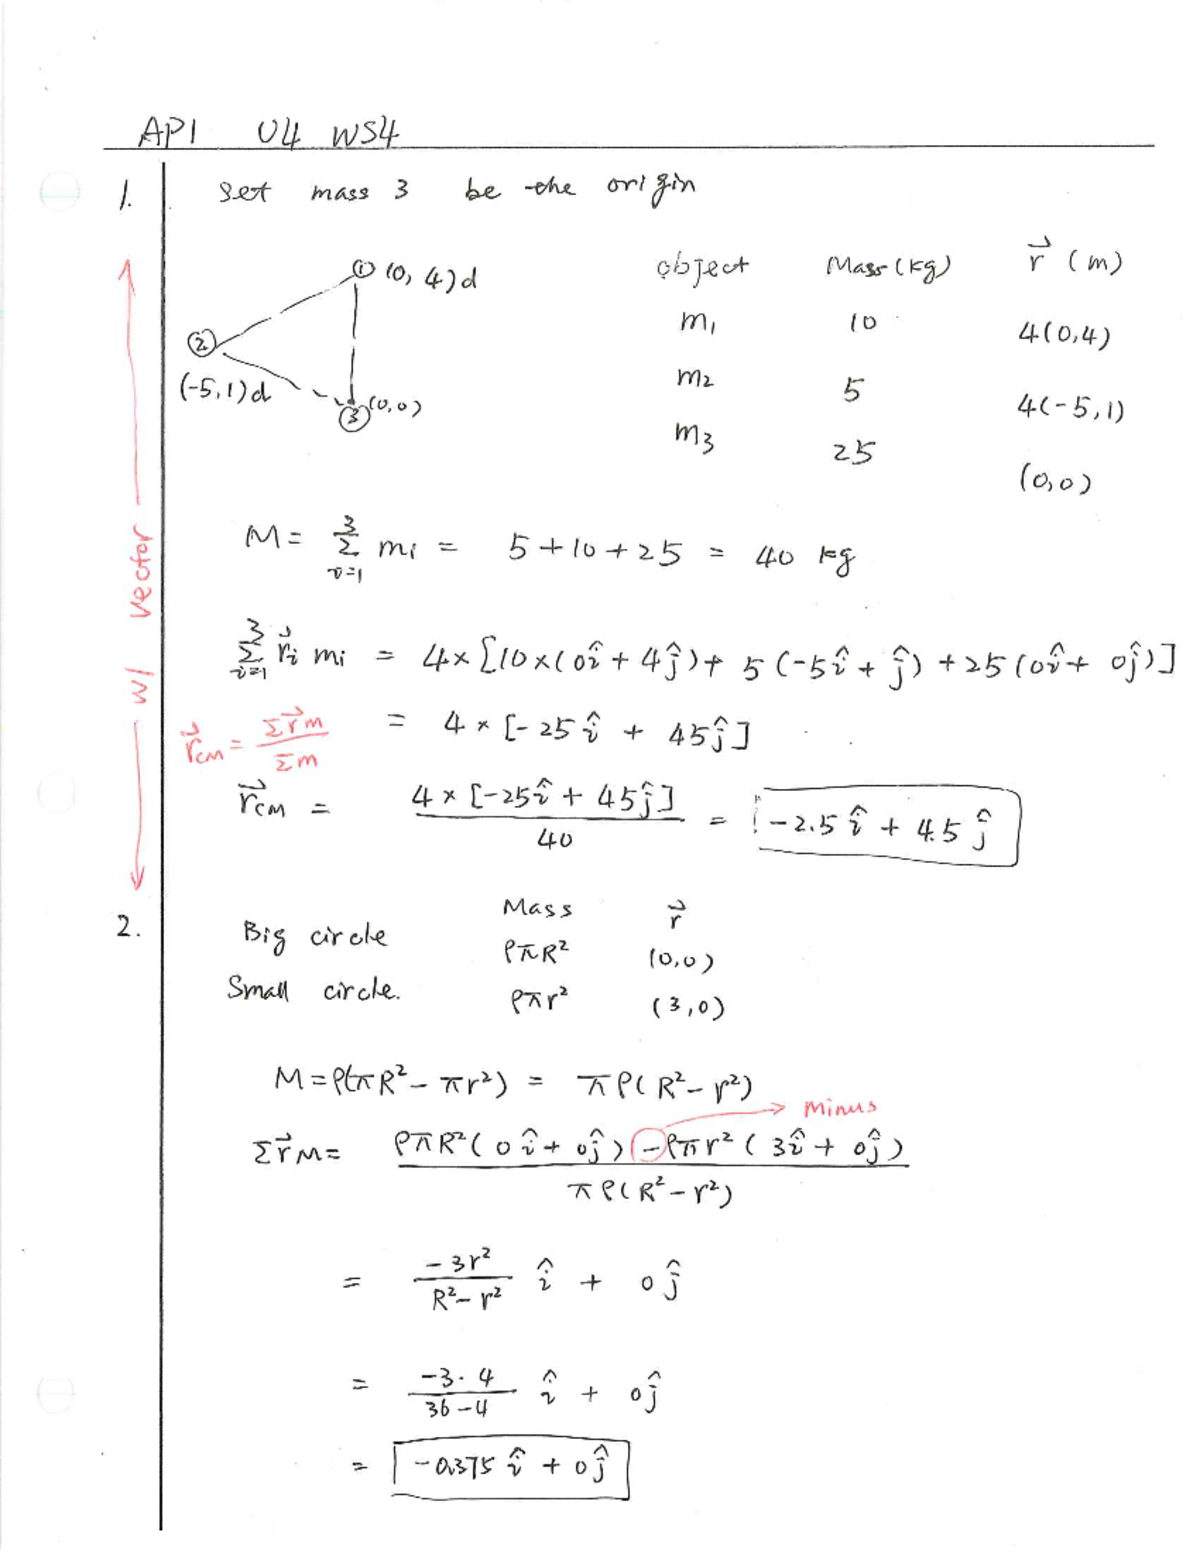 API U4 WS4
1. Set mass 3 be the origin
① (0, 4)d
②
(-5,1)d
③ (0,0)
object Mass (kg) r⃗ (m)
m₁ 10 4(0,4)
m₂ 5 4(-5,1)
m₃ 25 (0,0)
w/ vector
M = Σ_{i=1}^{3} mᵢ = 5+10+25 = 40 kg
Σ_{i=1}^{3} r⃗ᵢ mᵢ = 4×[10×(0î + 4ĵ)+ 5(-5î + ĵ) +25(0î+ 0ĵ)]
= 4 × [-25î + 45ĵ]
r⃗cм = Σr⃗m / Σm
r⃗cм = 4 × [-25î + 45ĵ] / 40 = -2.5î + 4.5ĵ
2. Mass r⃗
Big circle ρπR² (0,0)
Small circle. ρπr² (3,0)
M=ρ(πR²- πr²) = πρ(R²- r²)
minus
Σr⃗M = ρπR²(0î+ 0ĵ) - ρπr²(3î+ 0ĵ) / πρ(R²-r²)
= -3r² / R²-r² î + 0ĵ
= -3·4 / 36-4 î + 0ĵ
= -0.375î + 0ĵ